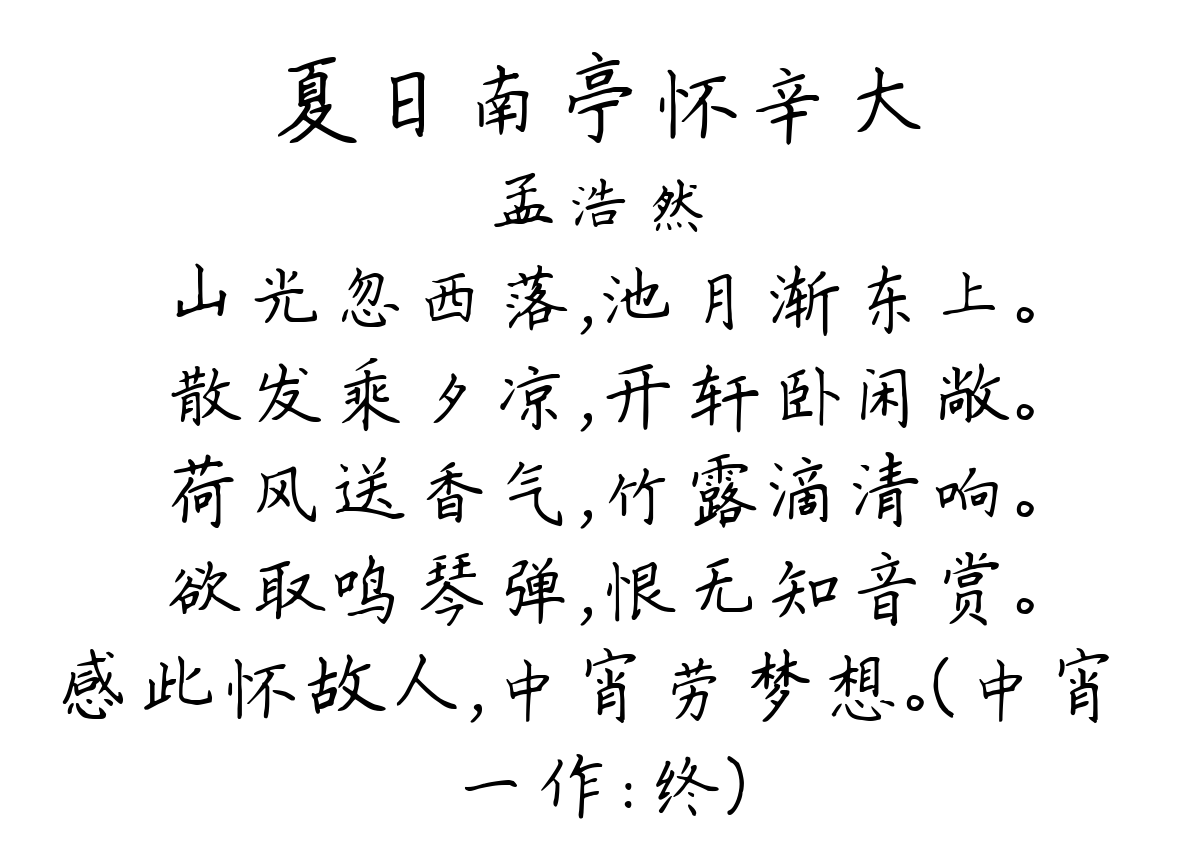 夏日南亭怀辛大
孟浩然
山光忽西落,池月渐东上。
散发乘夕凉,开轩卧闲敞。
荷风送香气,竹露滴清响。
欲取鸣琴弹,恨无知音赏。
感此怀故人,中宵劳梦想。(中宵
一作:终)